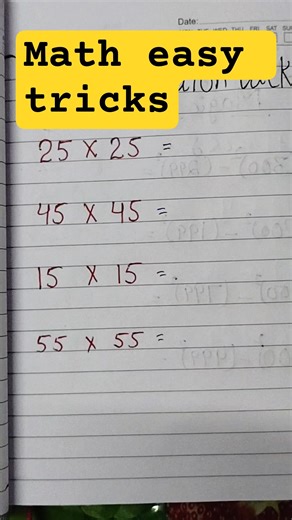 Date:
Math easy
tricks
25 × 25 =
45 × 45 =
15 × 15 =
55 × 55 =